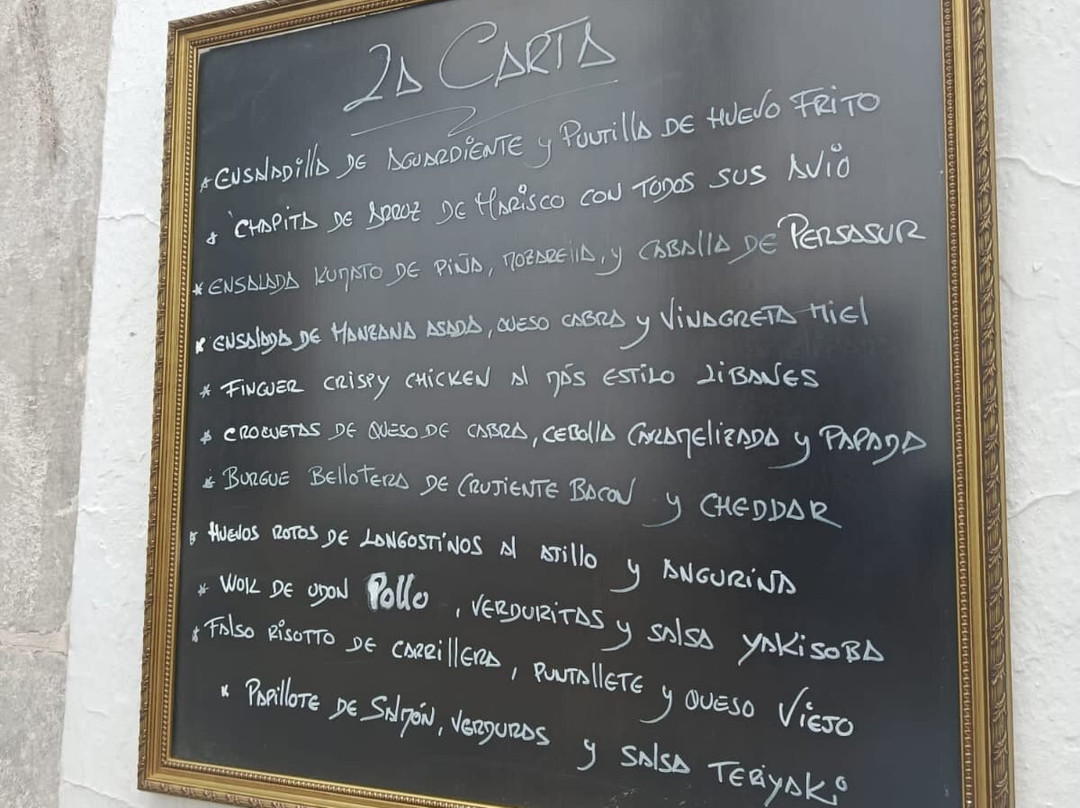 LA CARTA
* ENSALADILLA DE AGUARDIENTE y PUNTILLA DE HUEVO FRITO
* CHAPITA DE ARROZ DE MARISCO CON TODOS SUS AVIO
* ENSALADA KUMATO DE PIÑA, MOZARELLA, y CABALLA DE PERSASUR
* ENSALADA DE MANZANA ASADA, QUESO CABRA y VINAGRETA MIEL
* FINGUER CRISPY CHICKEN AL MÁS ESTILO LIBANES
* CROQUETAS DE QUESO DE CABRA, CEBOLLA CARAMELIZADA y PAPADA
* BURGUE BELLOTERA DE CRUJIENTE BACON y CHEDDAR
* HUEVOS ROTOS DE LANGOSTINOS AL AJILLO y ANGURIÑA
* WOK DE UDON Pollo, VERDURITAS y SALSA YAKISOBA
* FALSO RISOTTO DE CARRILLERA, PUNTALLETE y QUESO VIEJO
* PAPILLOTE DE SALMÓN, VERDURAS y SALSA TERIYAKI